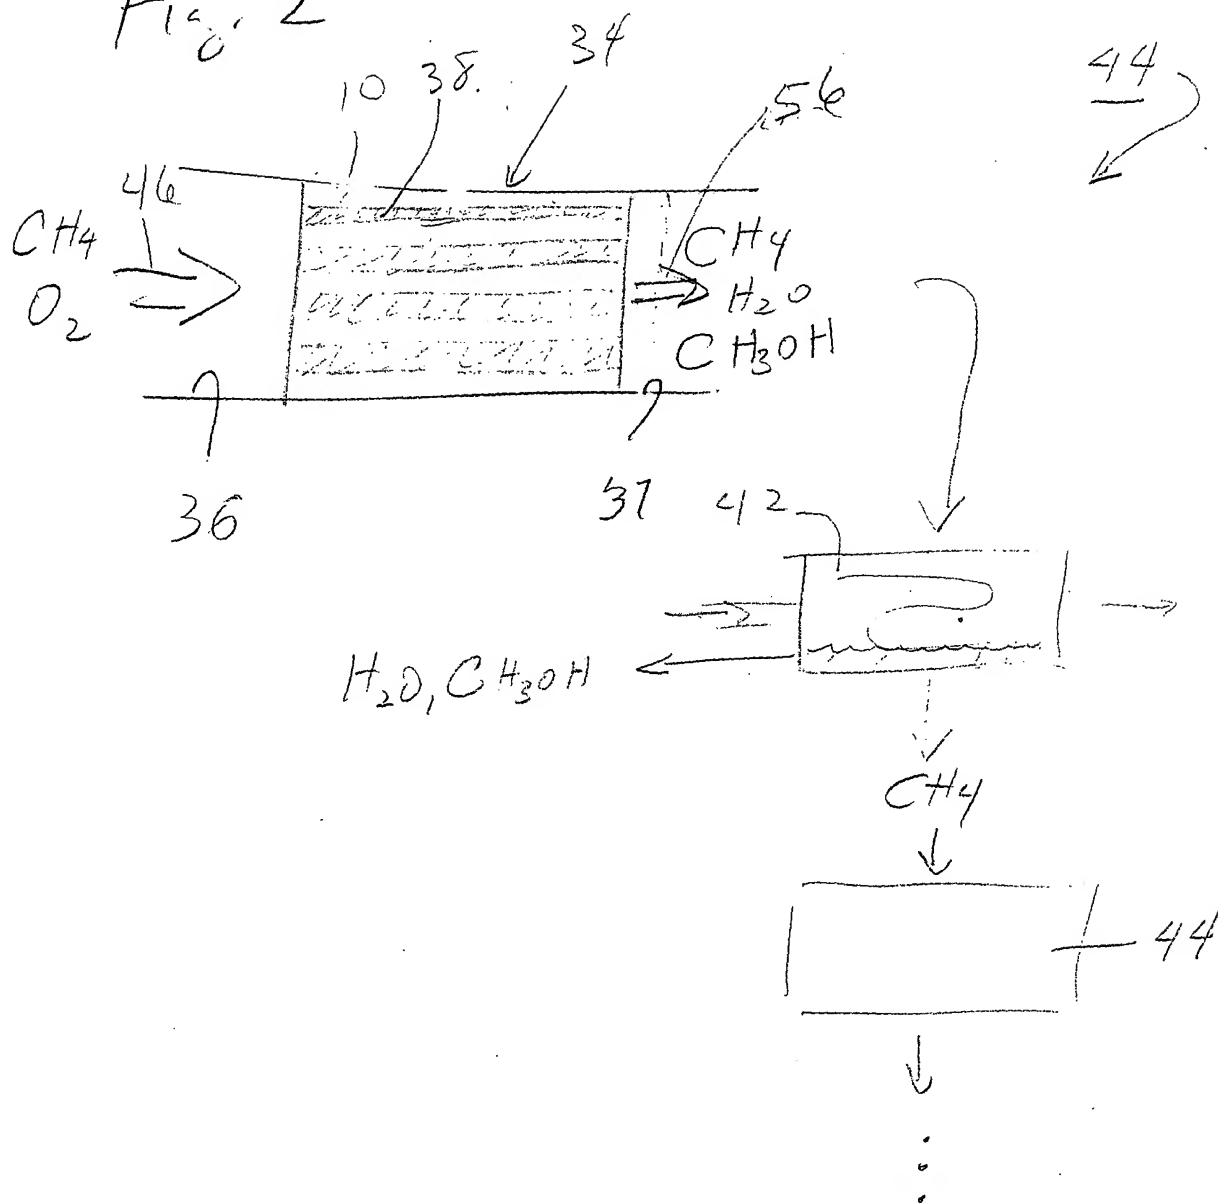 Fig. 2
34
44
10 38.
56
46
CH4
O2
CH4
H2O
CH3OH
36
37
42
H2O, CH3OH
CH4
44